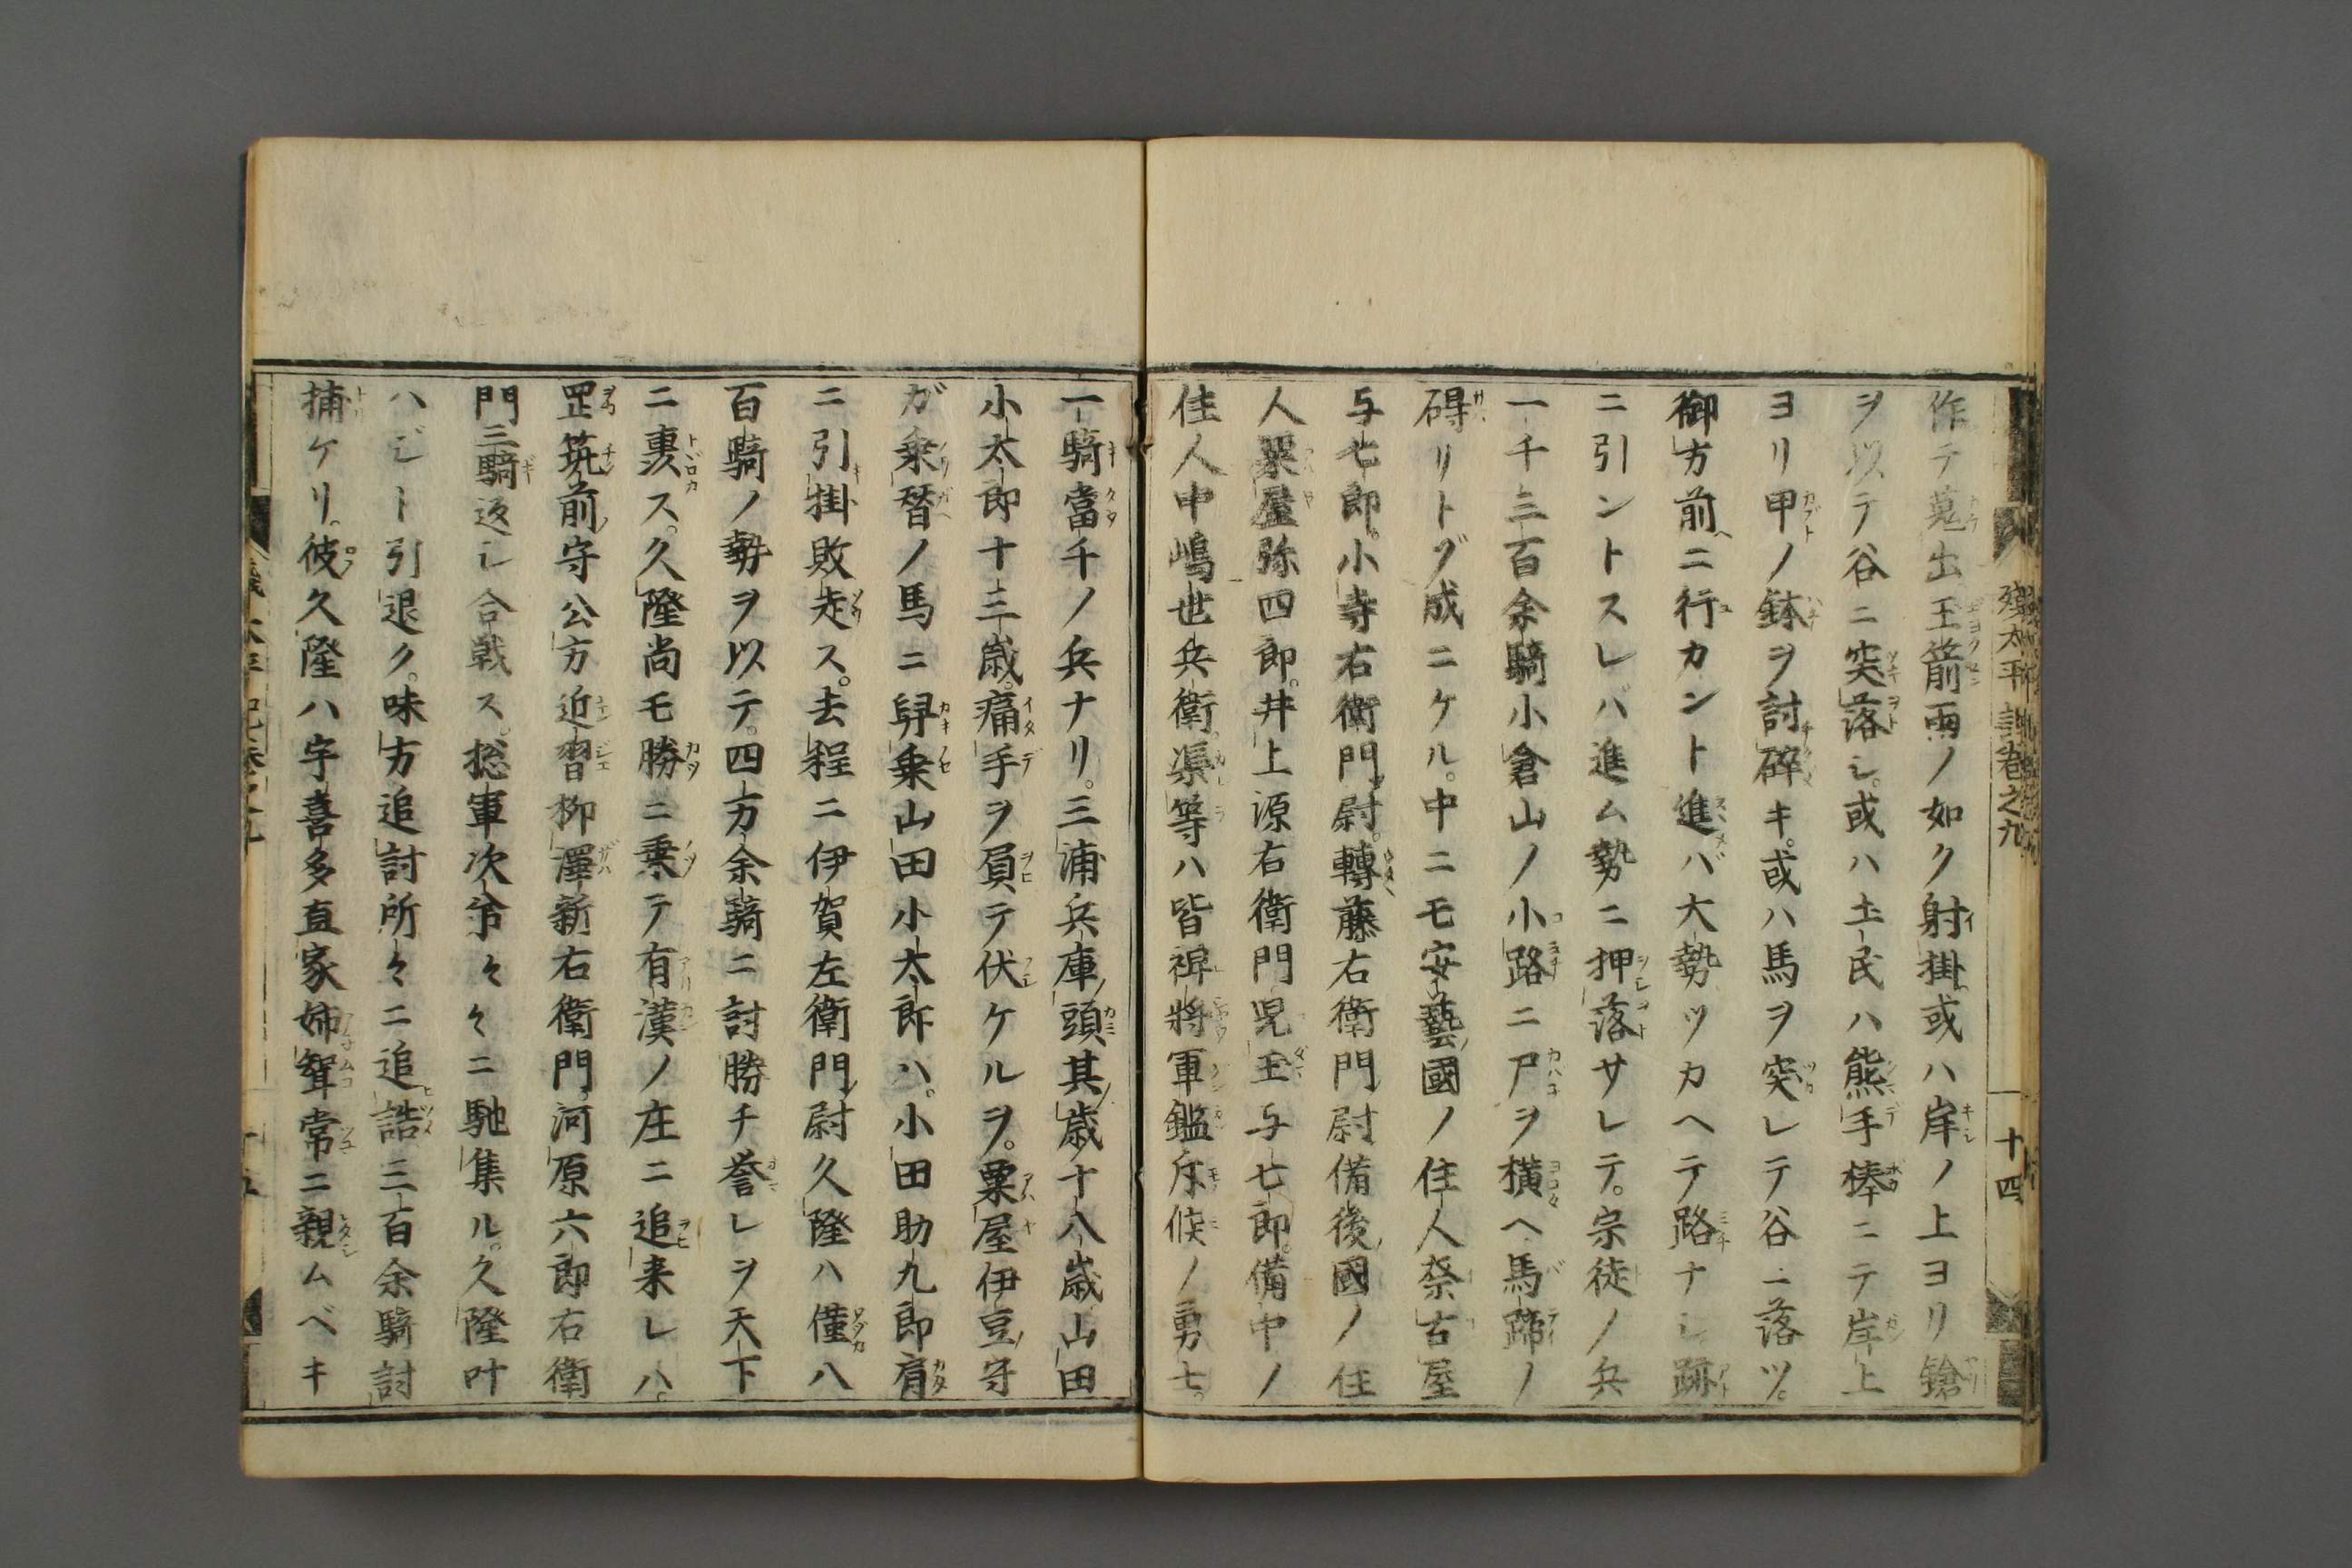 残太平記巻之九
十四
作テ蒐出玉箭雨ノ如ク射掛或ハ岸ノ上ヨリ鎗
ヲ以テ谷ニ突落シ。或ハ土民ハ熊手棒ニテ岸上
ヨリ甲ノ鉢ヲ討碎キ。或ハ馬ヲ突レテ谷ニ落ツ。
御方前ニ行カント進メバ大勢ツカヘテ路ナシ跡
ニ引ントスレバ進ム勢ニ押落サレテ。宗徒ノ兵
一千三百余騎小倉山ノ小路ニ尸ヲ横ヘ馬蹄ノ
碍リトゾ成ニケル。中ニモ安藝國ノ住人祭古屋
与七郎。小寺右衛門尉。轉藤右衛門尉備後國ノ住
人粟屋弥四郎。井上源右衛門児玉与七郎。備中ノ
住人中嶋世兵衛渠等ハ皆裨將軍鑑斥候ノ勇士。
一騎當千ノ兵ナリ。三浦兵庫頭其歳十八歳山田
小太郎十三歳。痛手ヲ負テ伏ケルヲ。粟屋伊豆守
ガ乗替ノ馬ニ舁乗山田小太郎ハ。小田助九郎肩
ニ引掛敗走ス。去程ニ伊賀左衛門尉久隆ハ僅八
百騎ノ勢ヲ以テ。四方余騎ニ討勝チ誉レヲ天下
ニ裏ス。久隆尚モ勝ニ乗テ有漢ノ庄ニ追来レハ。
罡筑前守公方近習柳澤新右衛門河原六郎右衛
門三騎返シ合戦ス。捴軍次第々々ニ馳集ル。久隆叶
ハジト引退ク。味方追討所々ニ追詰三百余騎討
捕ケリ。彼久隆ハ宇喜多直家姉聟常ニ親ムベキ